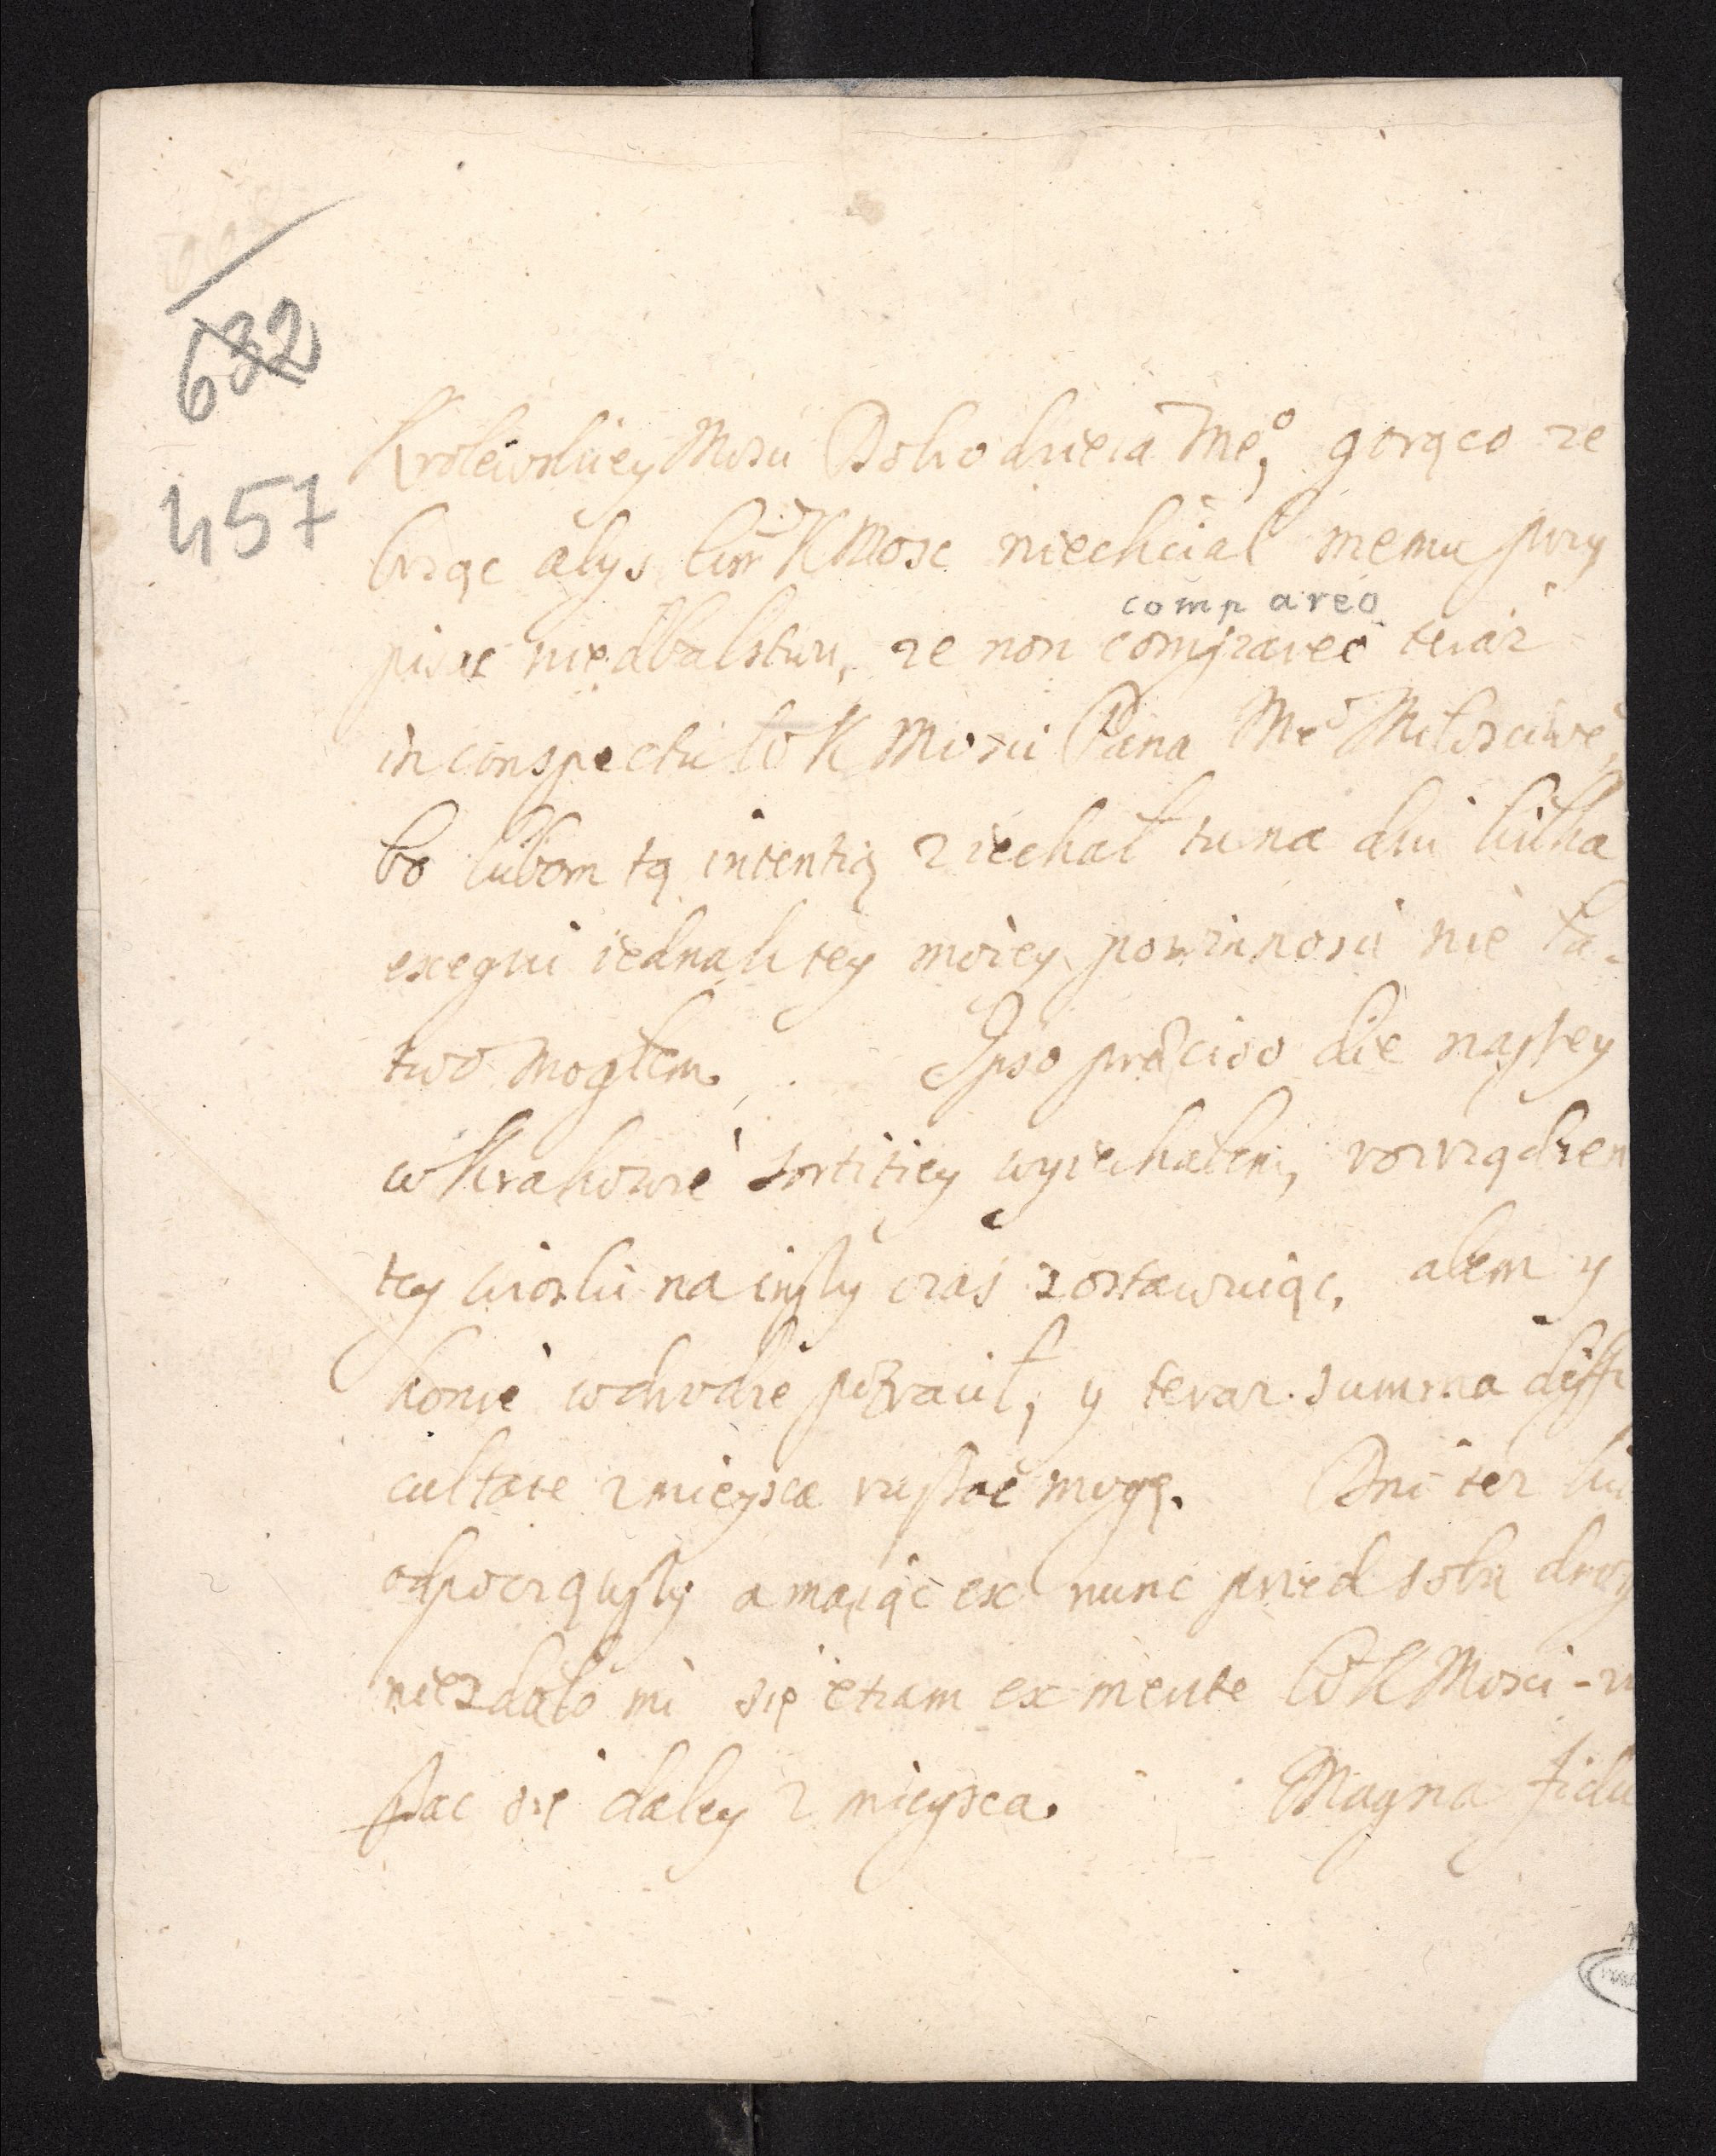 632
457
Krolewskiey Mosci Dobrodzieia Me°, gorąco ze
brząc abys WKMosc niechciał memu przy
pisac niedbalstwu, ze non compareo teraz
compareo
in conspectu WKMosci Pana Me° Miłosciwe°,
bo lubom tą intentią ziechał tu na dni kilka
exequi iednak tey moiey powinnosci nie ła-
two mogłem. Ipso præciso die naszey
w Krakowie sortitiey wyiechałem, rozrządzen
tey wioski na inszy czas zostawuiąc, alem y
konie w drodze potracił, y teraz summa diffi
cultate z mieysca ruszac mogę. Dni tez
odpocząwszy a maiąc ex nunc przed sobą drog
niezdało mi się etiam ex mente WKMosci
szac się daley z mieysca. Magna fidu